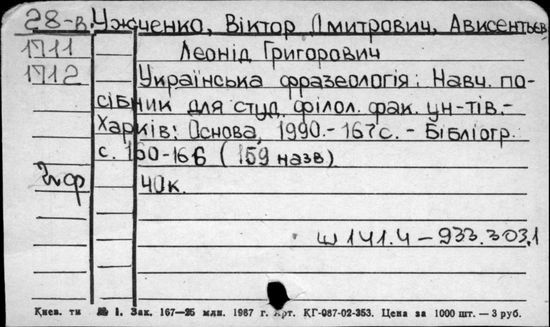 28-в. Ужченко, Віктор Дмитрович, Ависентьев
1711 Леонід Григорович
1712 Українська фразеологія: Навч. по-
сібник для студ. філол. фак. ун-тів.-
Харків: Основа, 1990.-167с. - Бібліогр.
с. 160-166 (159 назв)
40к.
ш 141.4 - 933.303.1
Киев. ти № 1. Зак. 167—25 млн. 1987 г. Арт. КГ-087-02-353. Цена за 1000 шт. — 3 руб.